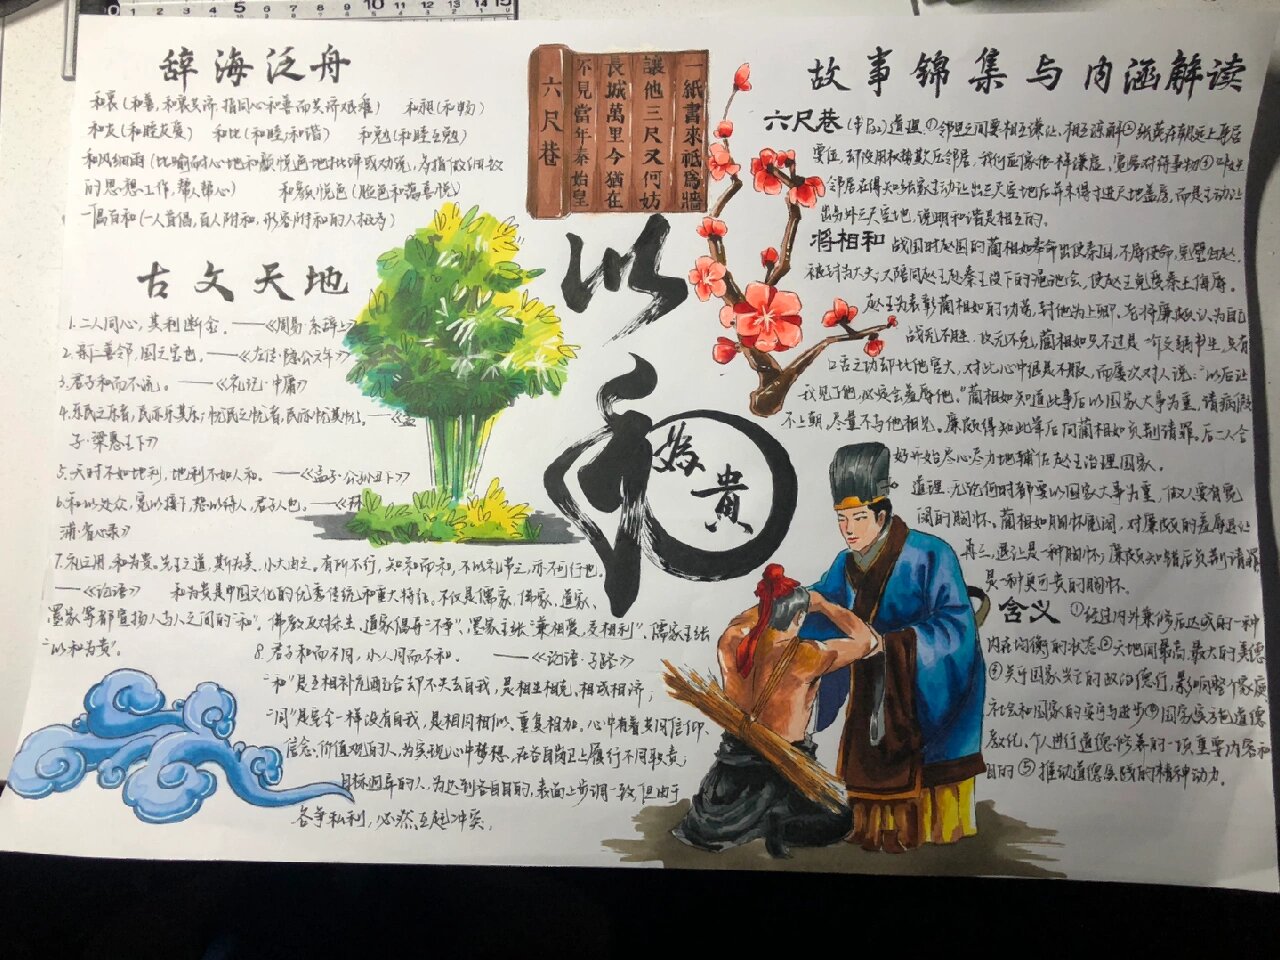 辞海泛舟
和衷(和善,和衷共济指同心和善而共济艰难) 和昶(和畅)
和友(和睦友爱) 和比(和睦,和谐) 和勉(和睦互勉)
和风细雨(比喻耐心地和颜悦色地批评或劝说,多指做细致
的思想工作,帮人散心) 和颜悦色(脸色和蔼喜悦)
一倡百和(一人首倡,百人附和,形容附和的人极多)
古文天地
1.二人同心,其利断金。——《周易·系辞上》
2.亲仁善邻,国之宝也。——《左传·隐公六年》
3.君子和而不流。——《礼记·中庸》
4.乐民之乐者,民亦乐其乐;忧民之忧者,民亦忧其忧。——《孟
子·梁惠王下》
5.天时不如地利,地利不如人和。——《孟子·公孙丑下》
6.和以处众,宽以接下,恕以待人,君子人也。——《林
浦·省心录》
7.礼之用,和为贵。先王之道,斯为美,小大由之。有所不行,知和而和,不以礼节之,亦不可行也。
——《论语》 和为贵是中国文化的优秀传统和重大特征。不仅是儒家,佛家、道家、
墨家等都宣扬人与人之间的“和”。佛教反对杀生、道家倡导“不争”、墨家主张“兼相爱,交相利”、儒家主张
“以和为贵”。
8.君子和而不同,小人同而不和。——《论语·子路》
“和”是互相补充配合却不失去自我,是相生相克,相成相济;
“同”是完全一样没有自我,是相同相似、重复相加。心中有着共同信仰、
信念、价值观的人,为实现心中梦想,在各自岗位上履行不同职责;
目标迥异的人,为达到各自目的,表面上步调一致但由于
各争私利,必然互起冲突。
六尺巷
一紙書來祗為牆
讓他三尺又何妨
長城萬里今猶在
不見當年秦始皇
以和為貴
故事锦集与内涵解读
六尺巷 道理:①邻里之间要相互谦让,相互谅解②张英在朝廷上身居
要位,却没用权势欺压邻居,我们应像他一样谦虚,宽容对待事物③
邻居在得知张家主动让出三尺空地后并未得寸进尺地盖房,而是主动让
出另外三尺空地,说明和谐是相互的。
将相和 战国时赵国的蔺相如奉命出使秦国,不辱使命,完璧归赵,
被封为大夫;又陪同赵王赴秦王设下的渑池会,使赵王免受秦王侮辱。
赵王为表彰蔺相如的功劳,封他为上卿。老将廉颇认为自己
战无不胜,攻无不克,蔺相如只不过是一介文弱书生,只有
口舌之功却比他官大,对此心中很是不服,而屡次对人说:“以后让
我见了他,必定会羞辱他。”蔺相如知道此事后以国家大事为重,请病假
不上朝,尽量不与他相见。廉颇得知此事后向蔺相如负荆请罪。后二人合
好开始尽心尽力地辅佐赵王治理国家。
道理:无论何时都要以国家大事为重,做人要有宽
阔的胸怀。蔺相如胸怀宽阔,对廉颇的羞辱退让
再三,退让是一种胸怀;廉颇知错后负荆请罪
是一种更可贵的胸怀。
含义 ①经过内外兼修后达成的一种
内在均衡的状态②天地间最高、最大的美德
④关乎国家兴亡的政治德行,影响整个家庭
社会和国家的安宁与进步③国家实施道德
教化、个人进行道德修养的一项重要内容和
目的⑤推动道德实践的精神动力。